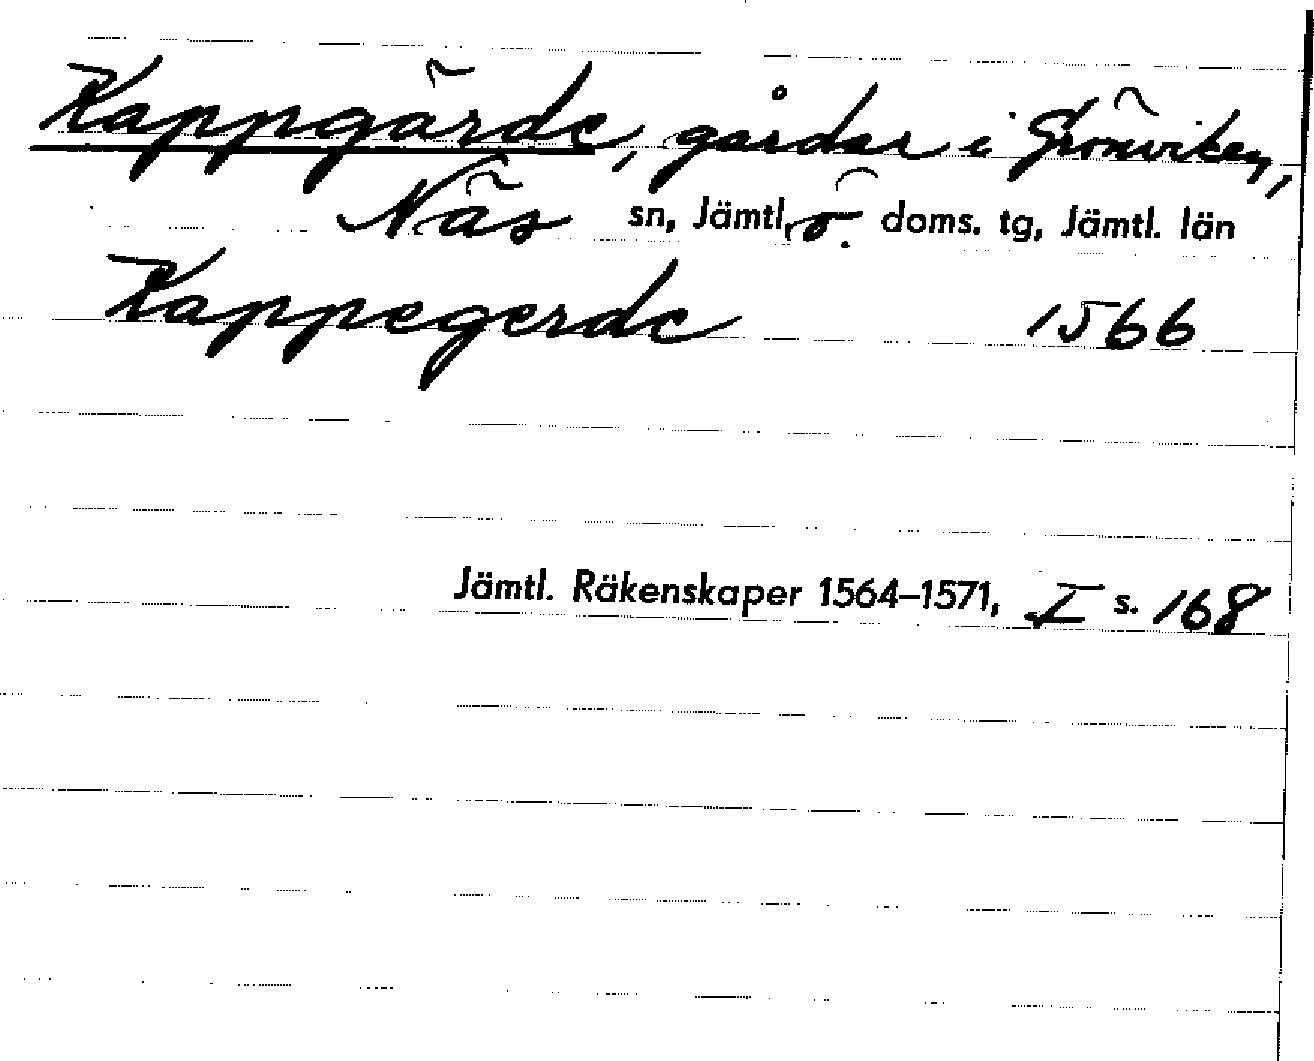 Kappgärde, gårdar i Grönviken,
Näs sn, Jämtl, ö. doms. tg, Jämtl. län
Kappegerde 1566
Jämtl. Räkenskaper 1564–1571, I s. 168